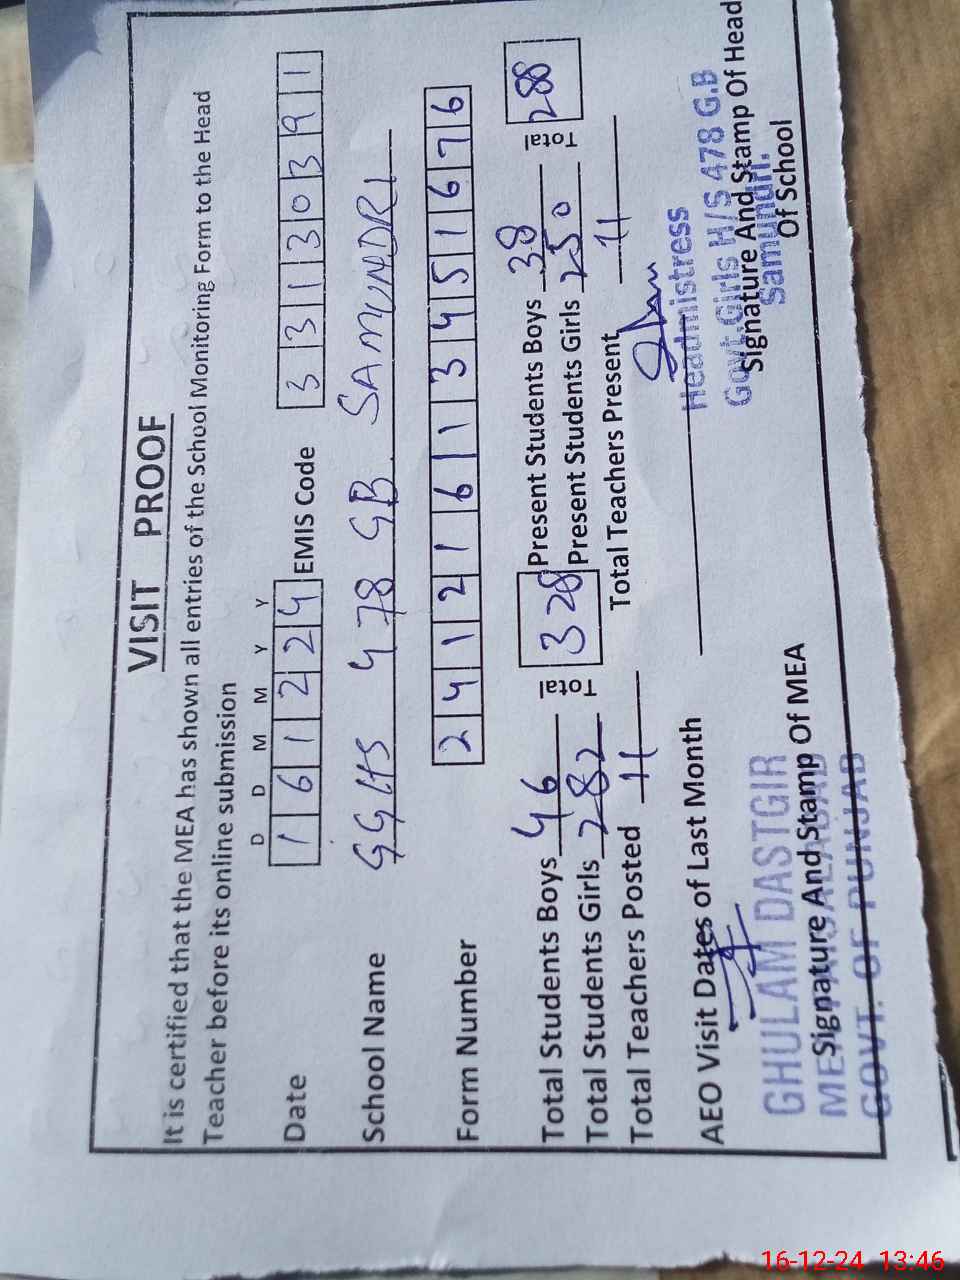 VISIT PROOF
It is certified that the MEA has shown all entries of the School Monitoring Form to the Head
Teacher before its online submission
D D M M Y Y
Date 1 6 1 2 2 4 EMIS Code 3 3 1 3 0 3 9 1
School Name GGHS 478 GB SAMUNDRI
Form Number 2 4 1 2 1 6 1 1 3 4 5 1 6 7 6
Total Students Boys 46 Total 328 Present Students Boys 38 Total 288
Total Students Girls 282 Present Students Girls 250
Total Teachers Posted 11 Total Teachers Present 11
AEO Visit Dates of Last Month
Headmistress
Govt. Girls H/S 478 G.B
Samundri.
Signature And Stamp Of Head
Of School
GHULAM DASTGIR
MEA FAISALABAD
GOVT. OF PUNJAB
Signature And Stamp Of MEA
16-12-24 13:46